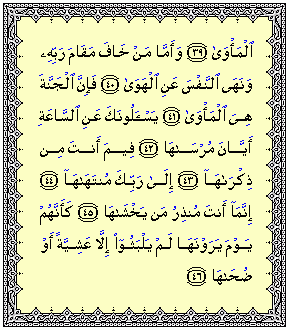 ٱلۡمَأۡوَىٰ ٣٩ وَأَمَّا مَنۡ خَافَ مَقَامَ رَبِّهِۦ
وَنَهَى ٱلنَّفۡسَ عَنِ ٱلۡهَوَىٰ ٤٠ فَإِنَّ ٱلۡجَنَّةَ
هِىَ ٱلۡمَأۡوَىٰ ٤١ يَسۡـَٔلُونَكَ عَنِ ٱلسَّاعَةِ
أَيَّانَ مُرۡسَىٰهَا ٤٢ فِيمَ أَنتَ مِن
ذِكۡرَىٰهَآ ٤٣ إِلَىٰ رَبِّكَ مُنتَهَىٰهَآ ٤٤
إِنَّمَآ أَنتَ مُنذِرُ مَن يَخۡشَىٰهَا ٤٥ كَأَنَّهُمۡ
يَوۡمَ يَرَوۡنَهَا لَمۡ يَلۡبَثُوٓاْ إِلَّا عَشِيَّةً أَوۡ
ضُحَىٰهَا ٤٦